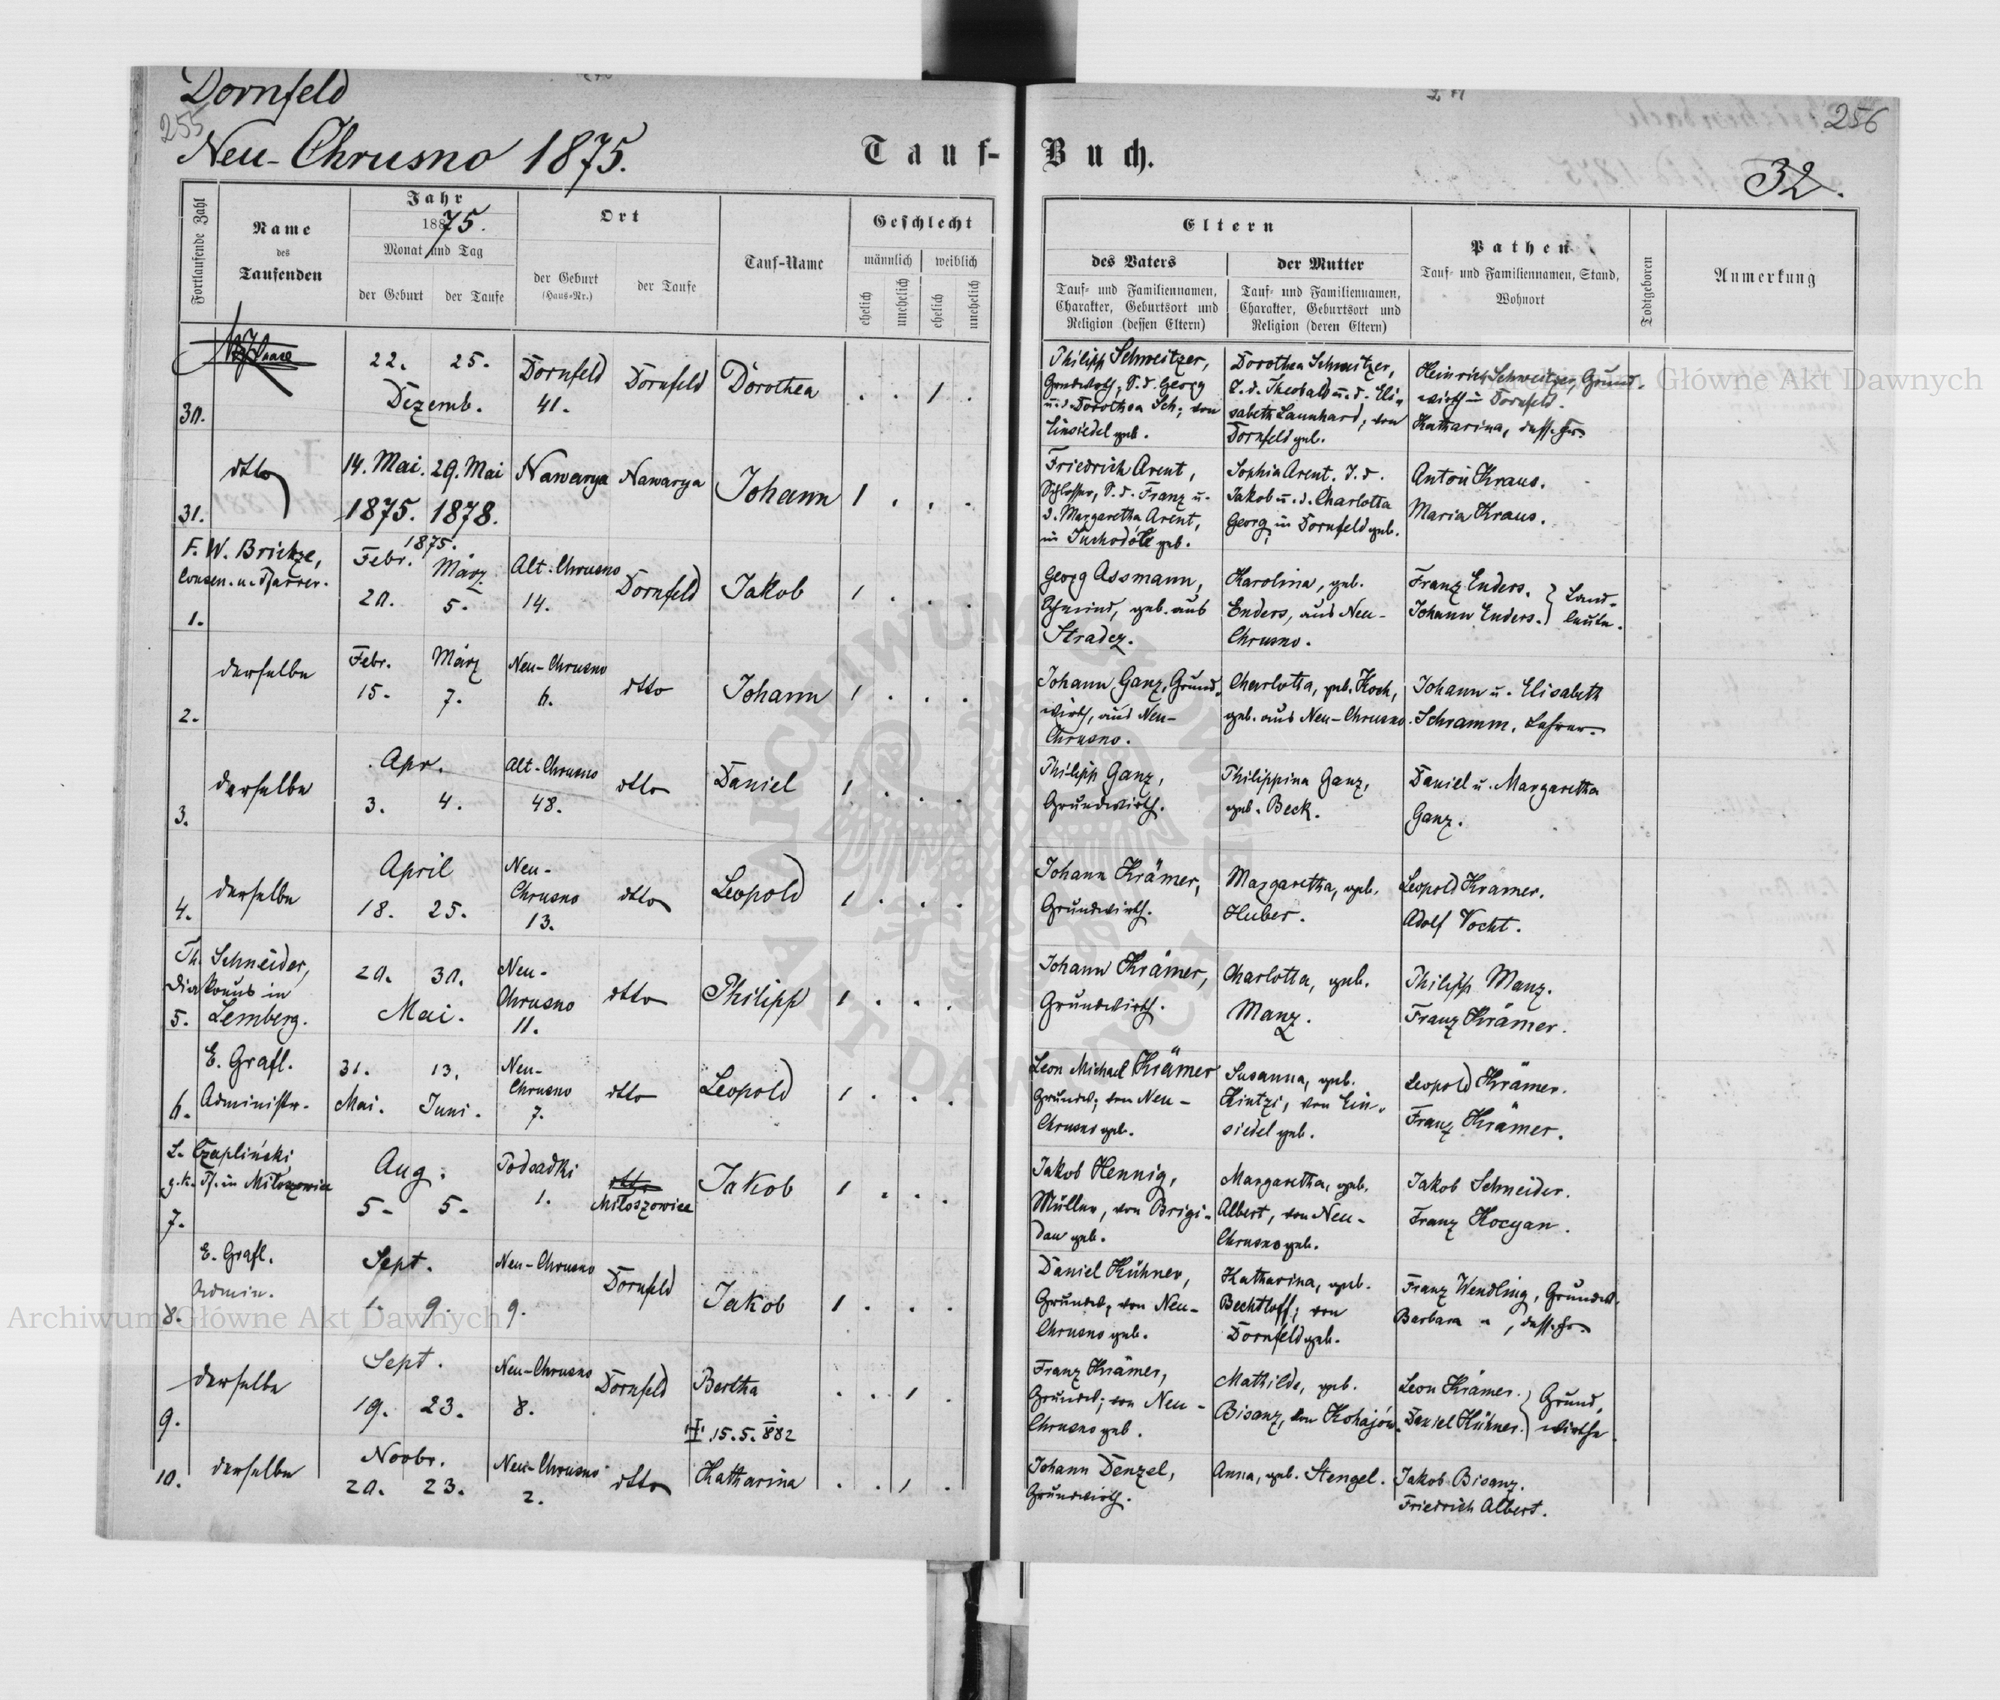 Dornfeld
255
Neu-Chrusno 1875.
Tauf-
Buch.
256
32.
Fortlaufende Zahl
Name
des
Taufenden
Jahr
1875.
Monat und Tag
der Geburt
der Taufe
Ort
der Geburt
(Haus=Nr.)
der Taufe
Tauf=Name
Geschlecht
männlich
weiblich
ehelich
unehelich
ehelich
unehelich
Eltern
des Vaters
Tauf= und Familiennamen,
Charakter, Geburtsort und
Religion (dessen Eltern)
der Mutter
Tauf= und Familiennamen,
Charakter, Geburtsort und
Religion (deren Eltern)
Pathen
Tauf= und Familiennamen, Stand,
Wohnort
Todtgeboren
Anmerkung
30.
22. 25.
Dezemb.
Dornfeld
41.
Dornfeld
Dorothea
1
Philipp Schweitzer,
Grundwirth, S. d. Georg
u. d. Dorothea Sch., von
Einsiedel geb.
Dorothea Schweitzer,
T. d. Theobald u. d. Eli-
sabeth Launhard, von
Dornfeld geb.
Heinrich Schweitzer, Grund-
wirth in Dornfeld.
Katharina, dess. Fr.
31.
dtto
14. Mai. 29. Mai
1875. 1878.
Nawarya
Nawarya
Johann
1
Friedrich Arent,
Schlosser, S. d. Franz u.
d. Margaretha Arent,
Sophia Arent. T. d.
Jakob u. d. Charlotta
Georg, in Dornfeld geb.
Anton Kraus.
Maria Kraus.
F. W. Brickze,
Consen. u. Pfarrer.
1.
1875.
Febr. März
20. 5.
Alt-Chrusno
14.
Dornfeld
Jakob
1
Georg Assmann,
Schmied, geb. aus
Stradez.
Karolina, geb.
Enders, aus Neu-
Chrusno.
Franz Enders.
Johann Enders. } Land-
leute.
2.
derselbe
Febr. März
15. 7.
Neu-Chrusno
6.
dtto
Johann
1
Johann Ganz, Grund-
wirth, aus Neu-
Chrusno.
Charlotta, geb. Koch,
geb. aus Neu-Chrusno.
Johann u. Elisabeth
Schramm, Lehrer.
3.
derselbe
Apr.
3. 4.
Alt-Chrusno
48.
dtto
Daniel
1
Philipp Ganz,
Grundwirth.
Philippina Ganz,
geb. Beck.
Daniel u. Margaretha
Ganz.
4.
derselbe
April
18. 25.
Neu-
Chrusno
13.
dtto
Leopold
1
Johann Krämer,
Grundwirth.
Margaretha, geb.
Huber.
Leopold Kramer.
Adolf Vocht.
Th. Schneider,
Diakonus in
5. Lemberg.
20. 30.
Mai.
Neu-
Chrusno
11.
dtto
Philipp
1
Johann Krämer,
Grundwirth.
Charlotta, geb.
Manz.
Philipp Manz.
Franz Krämer.
E. Grafl.
6. Administr.
31. 13.
Mai. Juni.
Neu-
Chrusno
7.
dtto
Leopold
1
Leon Michael Krämer
Grundw., von Neu-
Chrusno geb.
Susanna, geb.
Kintzi, von Ein-
siedel geb.
Leopold Krämer.
Franz Krämer.
L. Czapliński
g. k. Pf. in Miłoszowice
7.
Aug.
5. 5.
Podsadki
1.
dtto
Miłoszowice
Jakob
1
Jakob Hennig,
Müller, von Brigi-
dau geb.
Margaretha, geb.
Albert, von Neu-
Chrusno geb.
Jakob Schneider.
Franz Kocyan.
E. Grafl.
Admin.
8.
Sept.
1. 9.
Neu-Chrusno
9.
Dornfeld
Jakob
1
Daniel Kühner,
Grundw., von Neu-
Chrusno geb.
Katharina, geb.
Bechtloff, von
Dornfeld geb.
Franz Wendling, Grundw.
Barbara " , dess. Fr.
9.
derselbe
Sept.
19. 23.
Neu-Chrusno
8.
Dornfeld
Bertha
15. 5. 882
1
Franz Krämer,
Grundw., von Neu-
Chrusno geb.
Mathilde, geb.
Bisanz, von Kohajów.
Leon Krämer.
Daniel Kühner. } Grund-
wirthe.
10.
derselbe
Novbr.
20. 23.
Neu-Chrusno
2.
dtto
Katharina
1
Johann Denzel,
Grundwirth.
Anna, geb. Stengel.
Jakob Bisanz.
Friedrich Albert.
Archiwum Główne Akt Dawnych
Archiwum Główne Akt Dawnych
ARCHIWUM GŁÓWNE AKT DAWNYCH